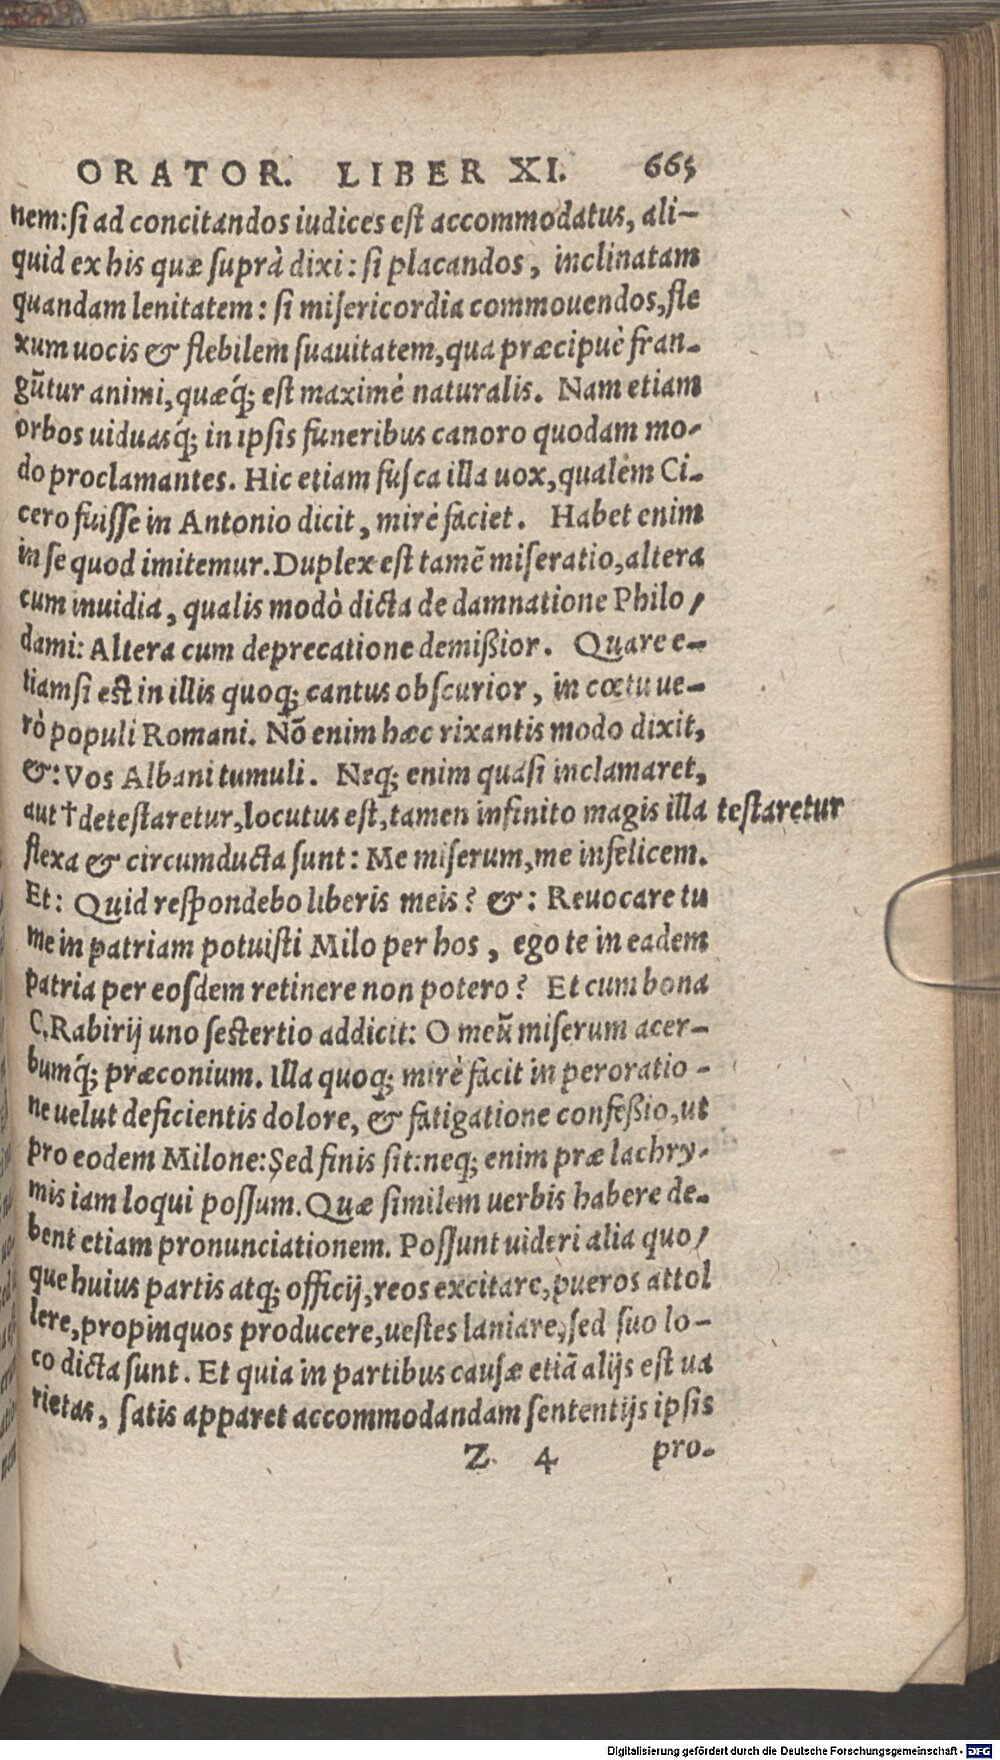 ORATOR. LIBER XI. 665
nem: si ad concitandos iudices est accommodatus, ali-
quid ex his quæ suprà dixi: si placandos, inclinatam
quandam lenitatem: si misericordia commouendos, fle
xum uocis & flebilem suauitatem, qua præcipuè fran-
gũtur animi, quæq́; est maximè naturalis. Nam etiam
orbos uiduasq́; in ipsis funeribus canoro quodam mo-
do proclamantes. Hic etiam fusca illa uox, qualem Ci-
cero fuisse in Antonio dicit, mirè faciet. Habet enim
in se quod imitemur. Duplex est tamẽ miseratio, altera
cum inuidia, qualis modò dicta de damnatione Philo/
dami: Altera cum deprecatione demißior. Quare e-
tiamsi est in illis quoq; cantus obscurior, in cœtu ue-
rò populi Romani. Nõ enim hæc rixantis modo dixit,
&: Vos Albani tumuli. Neq; enim quasi inclamaret,
aut † detestaretur, locutus est, tamen infinito magis illa testaretur
flexa & circumducta sunt: Me miserum, me infelicem.
Et: Quid respondebo liberis meis? &: Reuocare tu
me in patriam potuisti Milo per hos, ego te in eadem
patria per eosdem retinere non potero? Et cum bona
C. Rabirij uno sestertio addicit: O meũ miserum acer-
bumq́; præconium. Illa quoq; mirè facit in peroratio-
ne uelut deficientis dolore, & fatigatione confeßio, ut
pro eodem Milone: Sed finis sit: neq; enim præ lachry-
mis iam loqui possum. Quæ similem uerbis habere de-
bent etiam pronunciationem. Possunt uideri alia quo/
que huius partis atq; officij, reos excitare, pueros attol
lere, propinquos producere, uestes laniare, sed suo lo-
co dicta sunt. Et quia in partibus causæ etiã alijs est ua
rietas, satis apparet accommodandam sententijs ipsis
Z 4 pro-
Digitalisierung gefördert durch die Deutsche Forschungsgemeinschaft - DFG